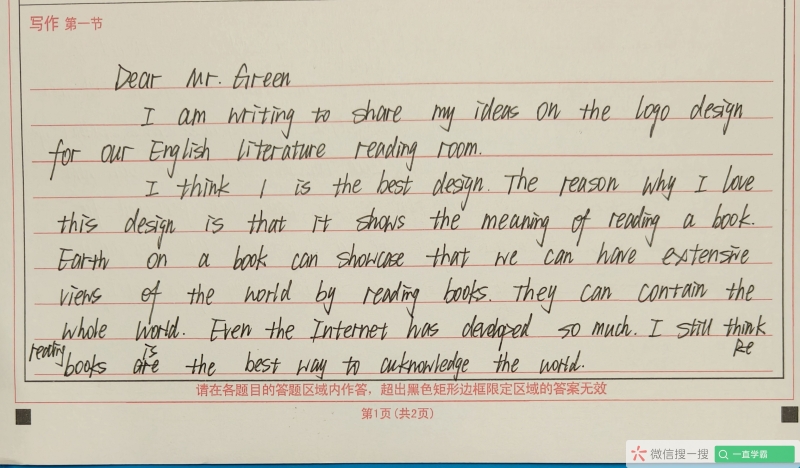 写作 第一节
Dear Mr. Green
I am writing to share my ideas on the logo design
for our English literature reading room.
I think 1 is the best design. The reason why I love
this design is that it shows the meaning of reading a book.
Earth on a book can showcase that we can have extensive
views of the world by reading books. They can contain the
whole world. Even the Internet has developed so much. I still think
reading books is the best way to acknowledge the world.
请在各题目的答题区域内作答，超出黑色矩形边框限定区域的答案无效
第1页(共2页)
微信搜一搜 一直学霸